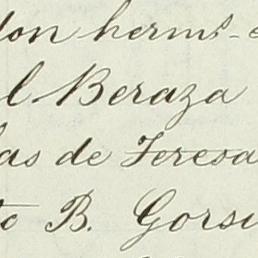 don herms. e
l Beraza
las de Teresa
to B. Gorsi